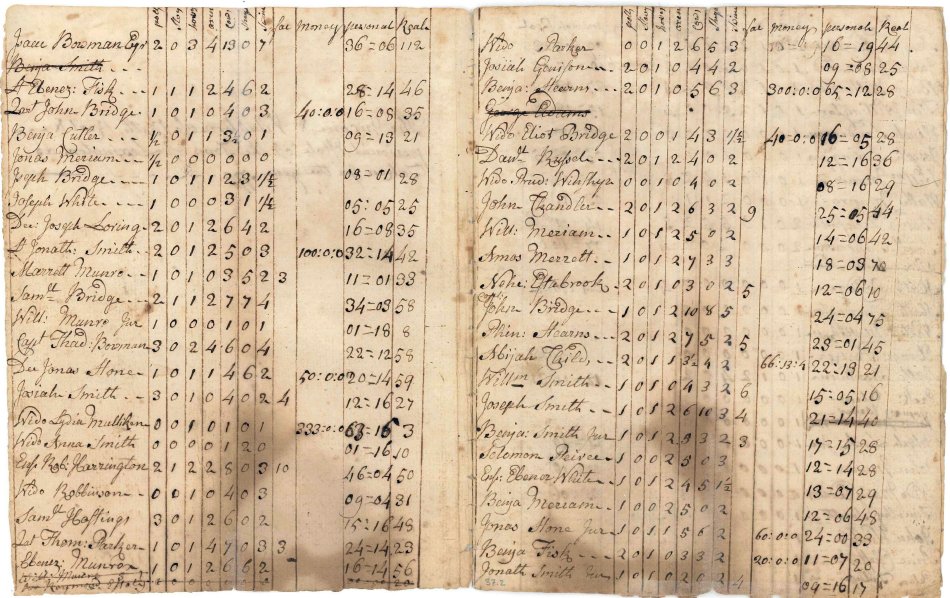 money personal Real
Isaac Bowman Esqr 2 0 3 4 13 0 7 36=06 112
Benja Smith
Lt Ebenez: Fisk 1 1 1 2 4 6 2 28=14 46
Qart John Bridge 1 0 1 0 4 0 3 40:0:0 16=08 35
Benja Cutler ½ 0 1 1 3 0 1 09=13 21
Jonas Meriam ½ 0 0 0 0 0 0
Joseph Bridge 1 0 1 1 2 3 1½ 08=01 28
Joseph White 1 0 0 0 3 1 05:05 25
Dec: Joseph Loring 2 0 1 2 6 4 2 16=08 35
Lt Jonath: Smith 2 0 1 2 5 0 3 100:0:0 32=14 42
Marrett Munro 1 0 1 0 3 5 2 3 11=01 33
Samll Bridge 2 1 1 2 7 7 4 34=03 58
Will: Munro Jur 1 0 0 0 1 0 1 01=18 8
Capt Thad: Bowman 3 0 2 4 6 0 4 22=12 58
Dec Jonas Stone 1 0 1 1 4 6 2 50:0:0 20=14 59
Josiah Smith 3 0 1 0 4 0 2 4 12=16 27
Wido Lydia Mulliken 0 0 1 0 1 0 1 333=0:0 63=16 3
Wido Anna Smith 0 0 0 0 1 2 0 01=16 10
Ens Rob: Harrington 2 1 2 2 8 0 3 10 46=04 50
Wido Robbinson 0 0 1 0 4 0 3 09=04 31
Samll Hastings 3 0 1 2 6 0 2 15=16 48
Qat Thom: Parker 1 0 1 4 7 0 3 3 24=14 23
Ebenez: Munroe 1 0 1 2 6 6 2 16=14 56
money personal Real
Wido Parker 0 0 1 2 6 5 3 16=19 44
Josiah 2 0 1 0 4 4 2 09=08 25
Benja: Stearns 2 0 1 0 5 6 3 300:0:0 65=12 28
George Adams
Wido Eliot Bridge 2 0 0 1 4 3 1½ 40=0:0 16=05 28
Davd Russel 2 0 1 2 4 0 2 12=16 36
Wido 0 0 1 0 4 0 2 08=16 29
John Chandler 2 0 1 2 6 3 2 9 25=05 44
Will: Meriam 1 0 1 2 5 0 2 14=06 42
Amos Merrett 1 0 1 2 7 3 3 18=03 70
Nehe: Estebrook 2 0 1 0 3 0 2 5 12=06 10
Capt John Bridge 1 0 1 2 10 8 5 24=04 75
Phin: Stearns 2 0 1 2 7 5 2 5 23=01 45
Abijah Child 2 0 1 1 3½ 4 2 66:13:4 22=13 21
Willm Smith 1 0 1 0 4 3 2 6 15=05 16
Joseph Smith 1 0 1 2 6 10 3 4 21=14 40
Benja: Smith Jur 1 0 1 2 9 3 2 3 17=15 28
Solomon Peirce 1 0 0 2 5 0 3 12=14 28
Ens: Ebenor White 1 0 1 2 4 5 1½ 13=07 29
Benja Meriam 1 0 0 2 5 0 2 12=06 48
Jonas Stone Jur 1 0 1 1 5 6 2 60:0:0 24=00 33
Benja Fisk 2 0 1 0 3 3 2 20:0:0 11=07 20
Jonath Smith Jur 1 0 1 0 2 0 2 4 09=16 17
37.2